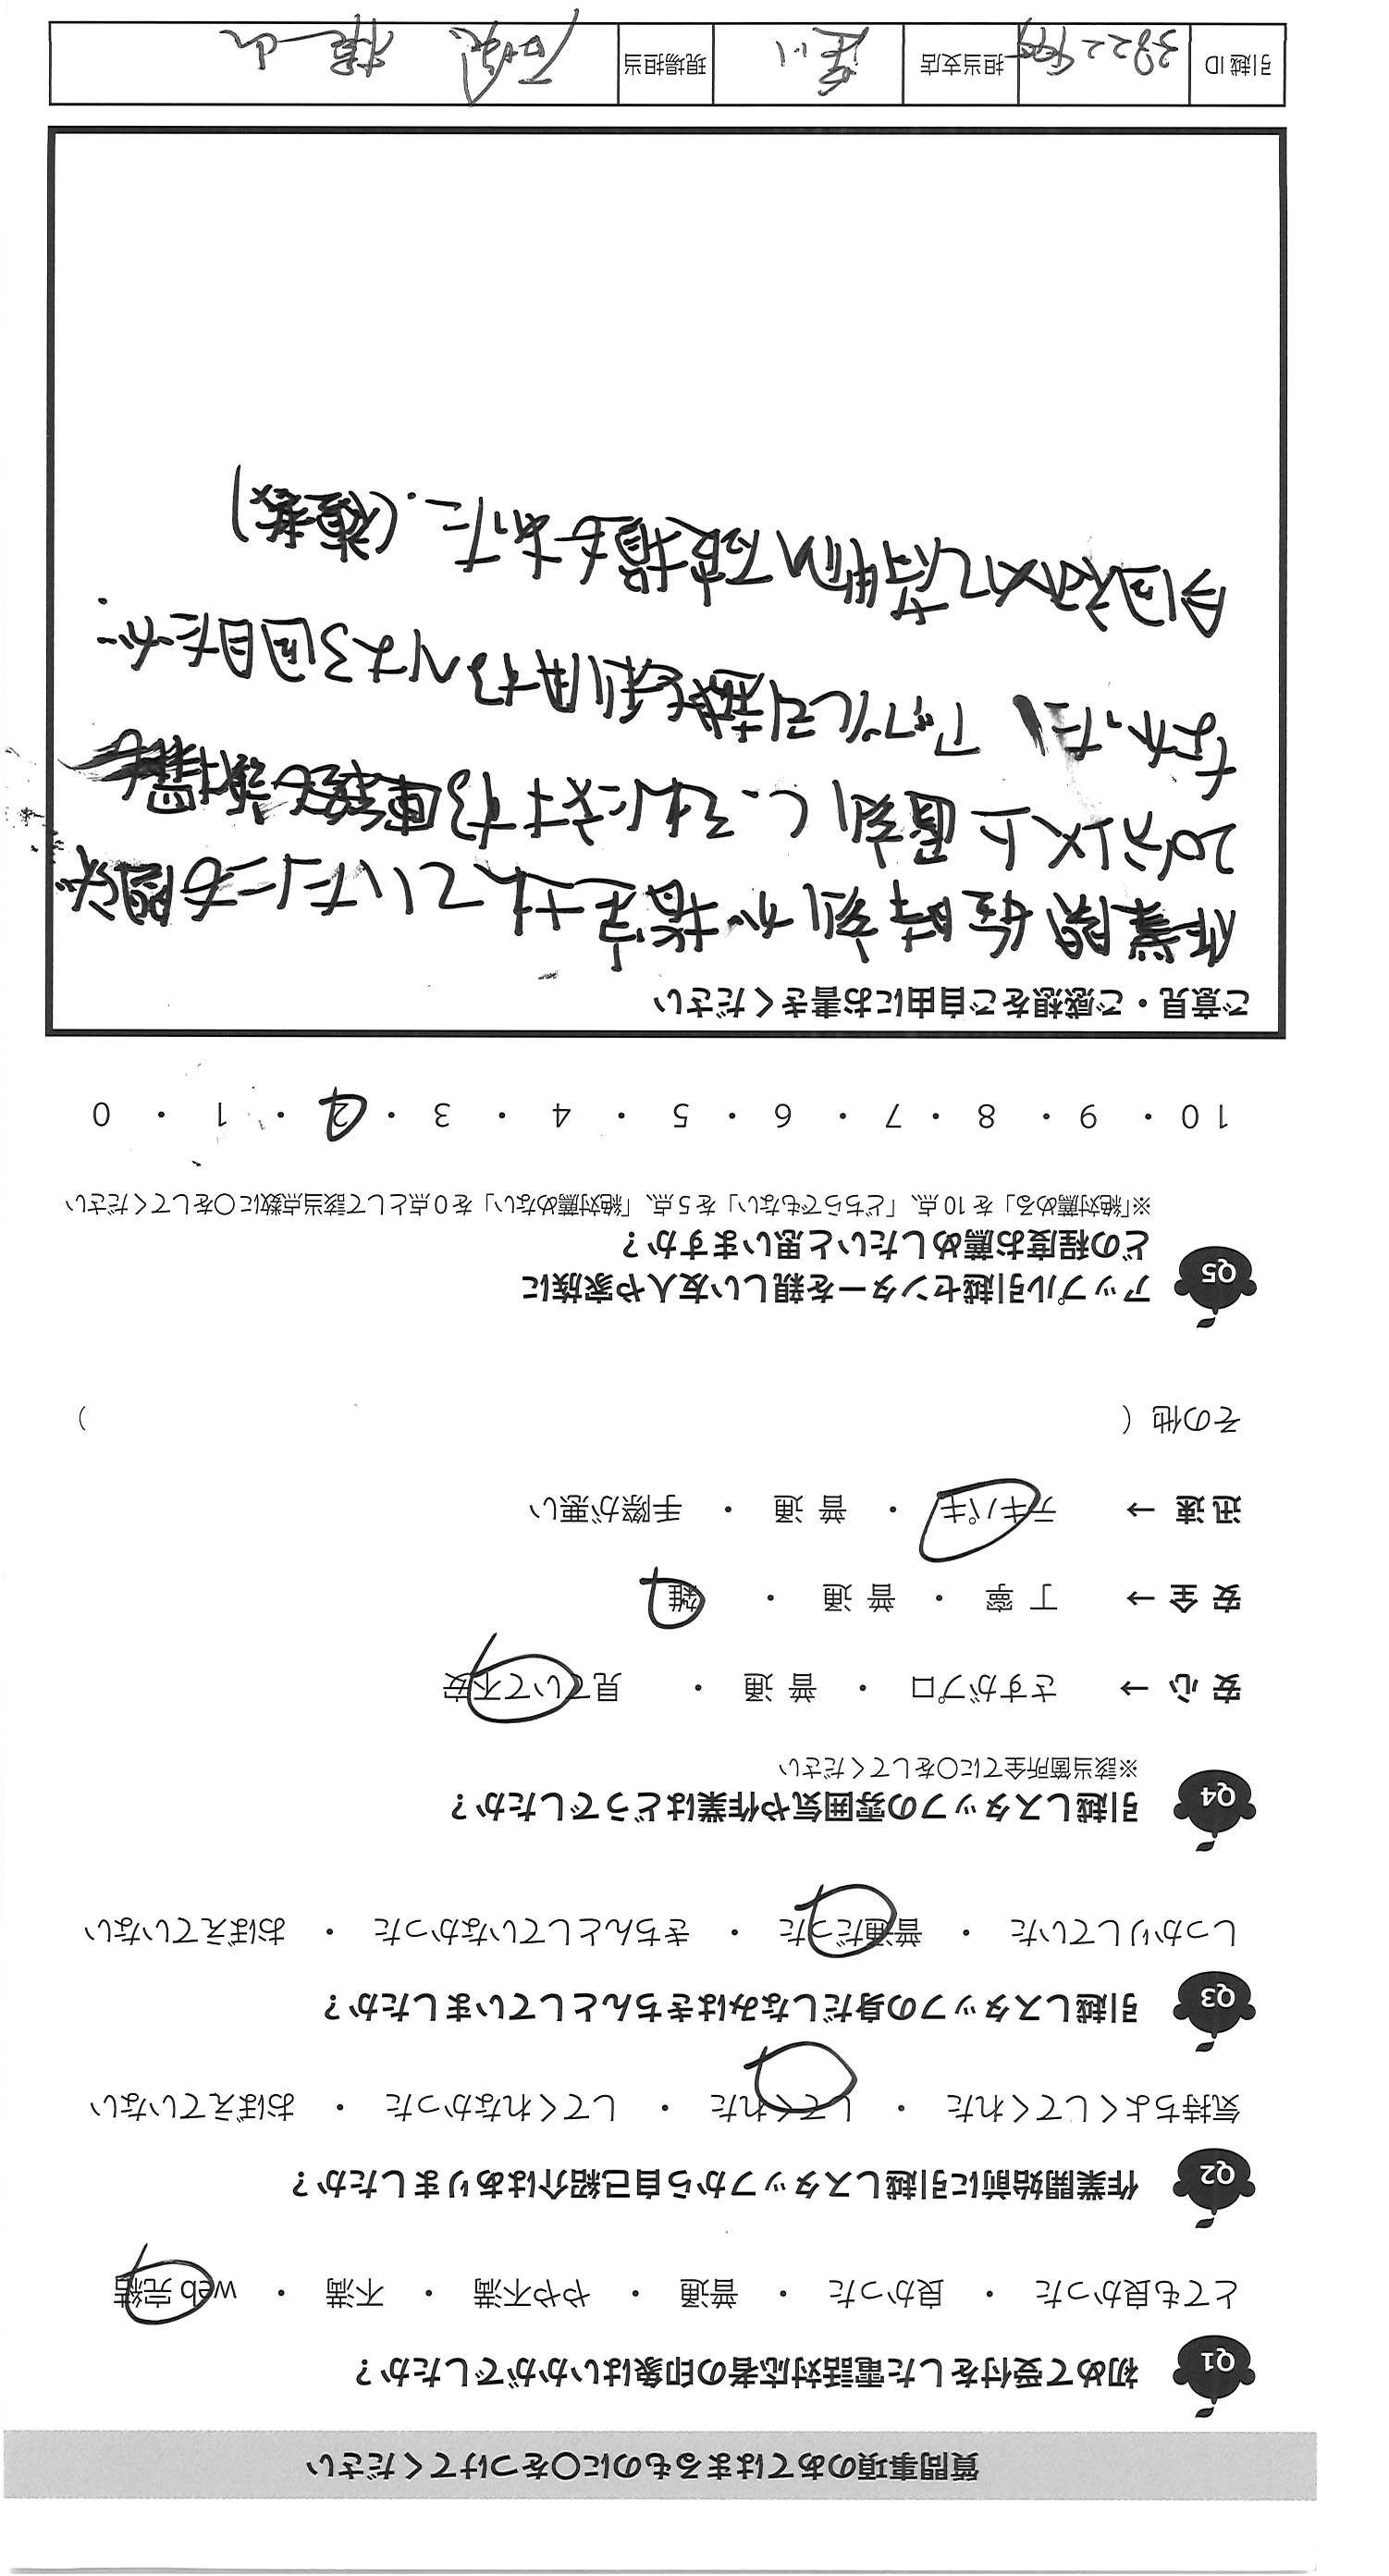 質問事項のあてはまるものに〇をつけてください
Q1 初めて受付をした電話対応者の印象はいかがでしたか？
とても良かった ・ 良かった ・ 普通 ・ やや不満 ・ 不満 ・ web 完結
Q2 作業開始前に引越しスタッフから自己紹介はありましたか？
気持ちよくしてくれた ・ してくれた ・ してくれなかった ・ おぼえていない
Q3 引越しスタッフの身だしなみはきちんとしていましたか？
しっかりしていた ・ 普通だった ・ きちんとしていなかった ・ おぼえていない
Q4 引越しスタッフの雰囲気や作業はどうでしたか？
※該当箇所全てに〇をしてください
安心 → さすがプロ ・ 普通 ・ 見ていて不安
安全 → 丁寧 ・ 普通 ・ 雑
迅速 → テキパキ ・ 普通 ・ 手際が悪い
その他（ ）
Q5 アップル引越センターを親しい友人や家族に
どの程度お薦めしたいと思いますか？
※「絶対薦める」を 10 点、「どちらでもない」を 5 点、「絶対薦めない」を 0 点として該当点数に〇をしてください
10 ・ 9 ・ 8 ・ 7 ・ 6 ・ 5 ・ 4 ・ 3 ・ 2 ・ 1 ・ 0
ご意見・ご感想をご自由にお書きください
作業開始時刻が指定されていたにも関わらず
20分以上遅刻し、それに対する連絡
なかった。アップル引越を利用するのは3回目だが、
今回初めて荷物の破損もあった。
引越 ID 担当支店 現場担当 石塚 横山